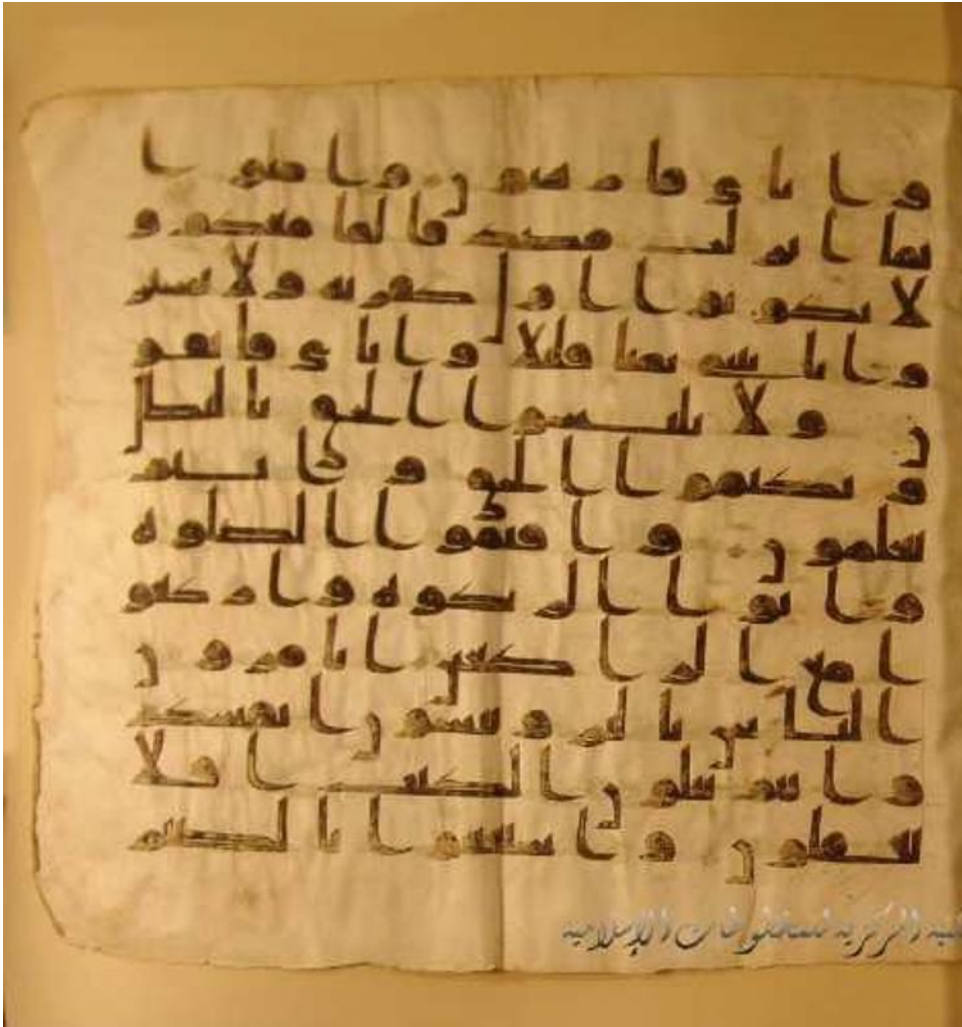 وايي فارهبون وامنوا
بما انزلت مصدقا لما معكم و
لا تكونوا اول كفر به ولا تشتر
وا بايتي ثمنا قليلا وايي فاتقو
ن ولا تلبسوا الحق بالبطل
وتكتموا الحق وانتم
تعلمون واقيموا الصلوه
واتوا الزكوه واركعو
ا مع الركعين اتامرون
الناس بالبر وتنسون انفسكم
وانتم تتلون الكتب افلا
تعقلون واستعينوا بالصبر
المركزية للمخطوطات الإسلامية